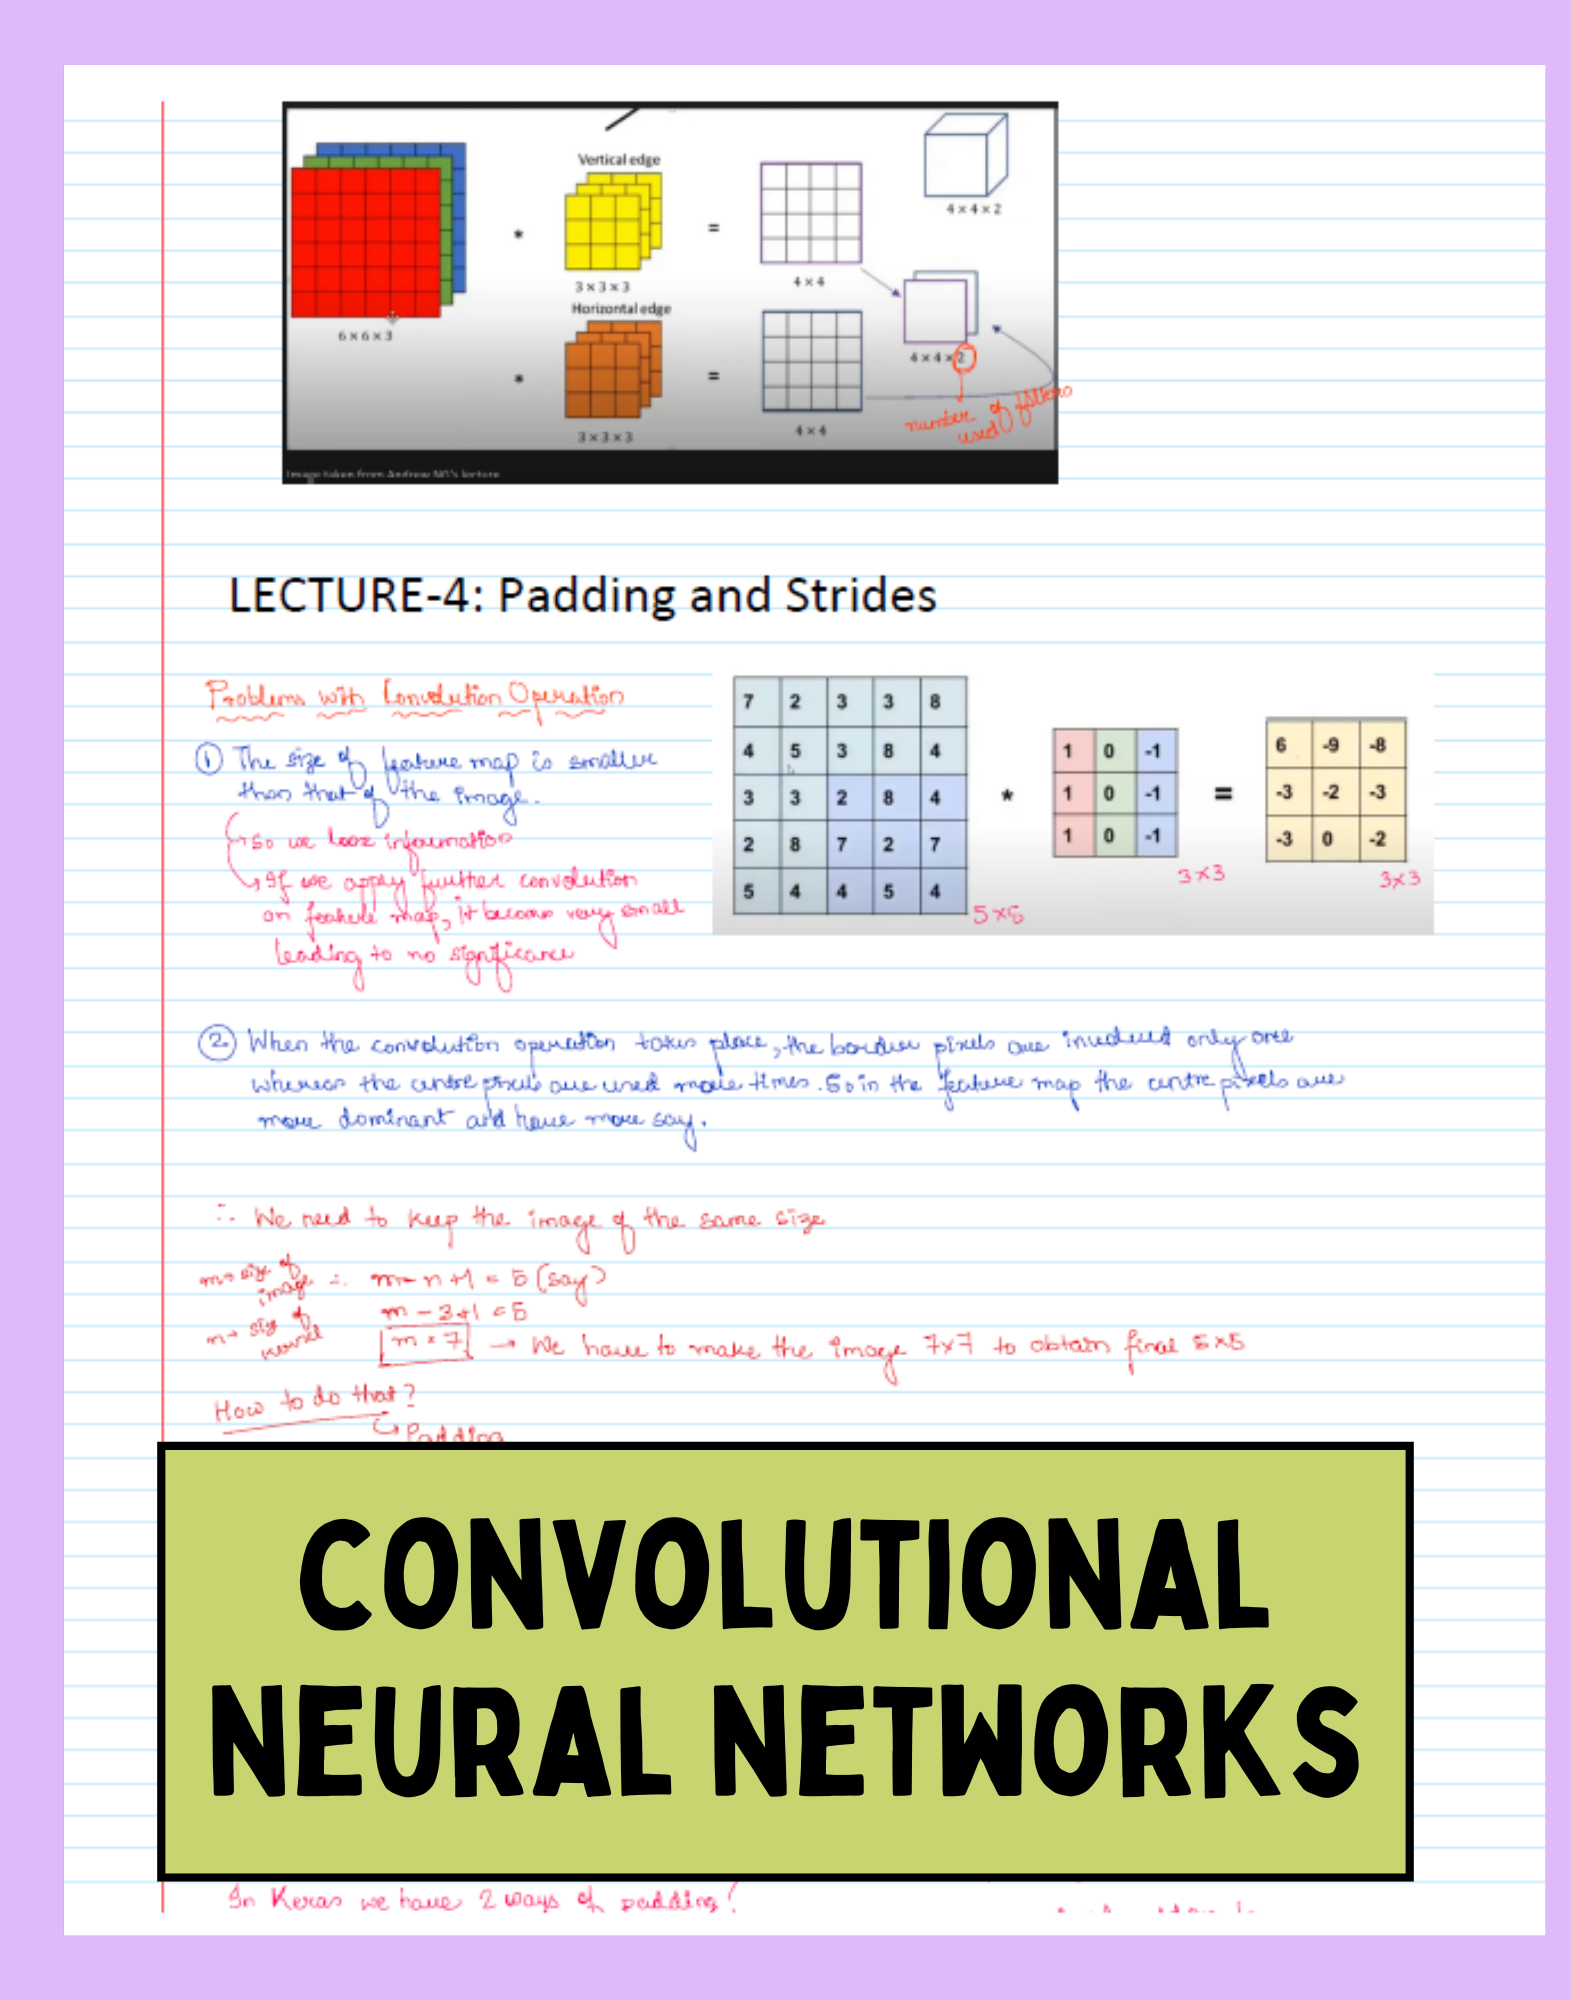 Vertical edge
4 × 4 × 2
*
=
3 × 3 × 3
4 × 4
Horizontal edge
6 × 6 × 3
4 × 4 × 2
*
=
number of filters
used
3 × 3 × 3
4 × 4
Image taken from Andrew NG's lecture
LECTURE-4: Padding and Strides
Problems with Convolution Operation
① The size of feature map is smaller
than that of the image.
↳ So we lose information
↳ If we apply further convolution
on feature map, it becomes very small
leading to no significance
7 2 3 3 8
4 5 3 8 4
3 3 2 8 4
2 8 7 2 7
5 4 4 5 4
5×5
*
1 0 -1
1 0 -1
1 0 -1
3×3
=
6 -9 -8
-3 -2 -3
-3 0 -2
3×3
② When the convolution operation takes place, the border pixels are involved only one
whereas the centre pixels are used more times. So in the feature map the centre pixels are
more dominant and have more say.
∴ We need to keep the image of the same size
m→ size of
image
∴ m - n + 1 = 5 (say)
n→ size of
kernel
m - 3 + 1 = 5
m = 7 → We have to make the image 7×7 to obtain final 5×5
How to do that?
↳ Padding
CONVOLUTIONAL
NEURAL NETWORKS
In Keras we have 2 ways of padding!